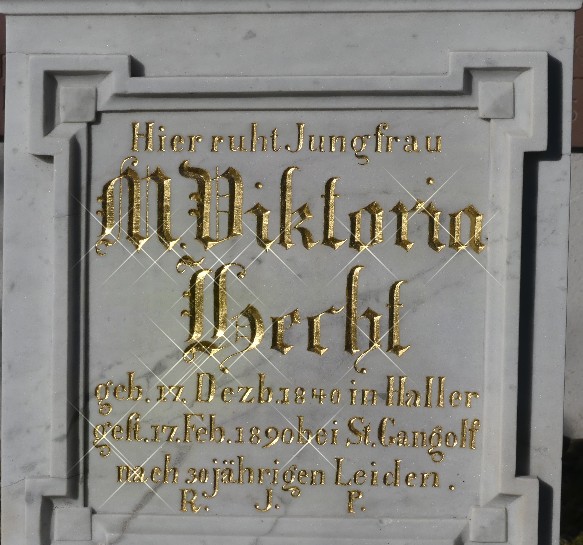 Hier ruht Jungfrau
M Viktoria
Hecht
geb. 17. Dezb. 1840 in Haller
gest. 17. Feb. 1890 bei St. Gangolf
nach 30 jährigen Leiden.
R. J. P.